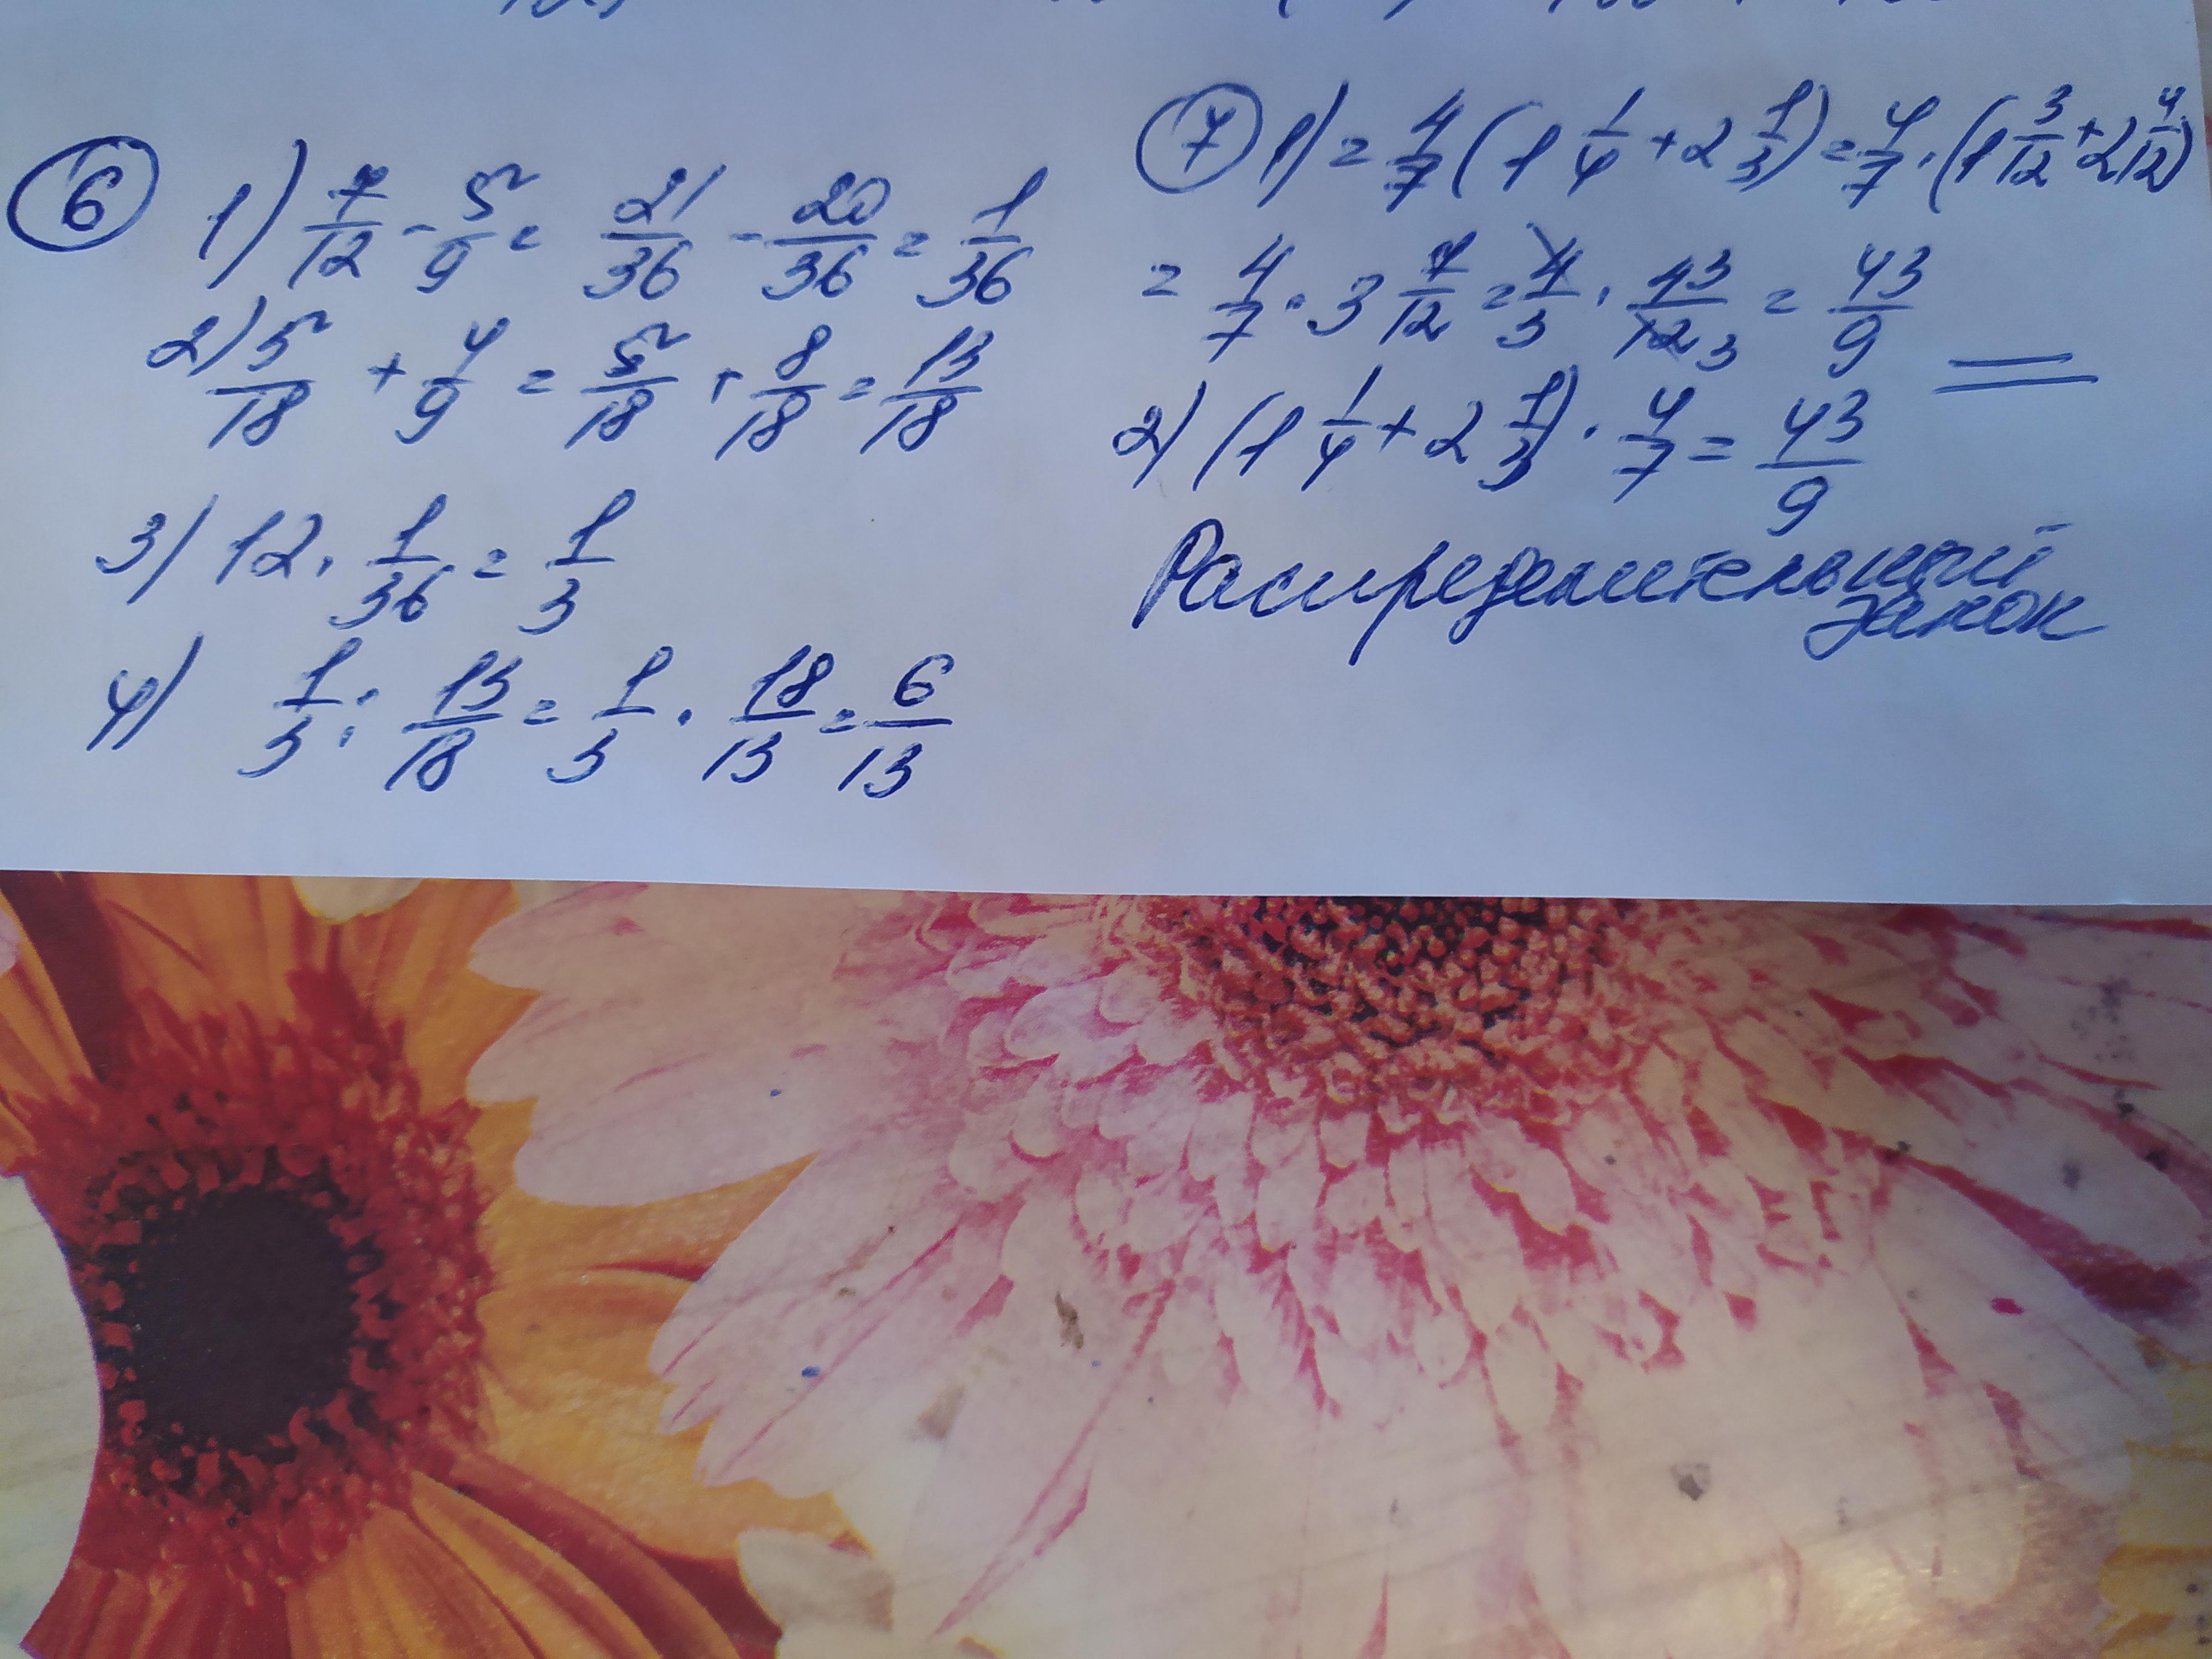 6
1) 7/12 - 5/9 = 21/36 - 20/36 = 1/36
2) 5/18 + 4/9 = 5/18 + 8/18 = 13/18
3) 12 · 1/36 = 1/3
4) 1/3 : 13/18 = 1/3 · 18/13 = 6/13
7
1) = 4/7 (1 1/4 + 2 1/3) = 4/7 · (1 3/12 + 2 4/12)
= 4/7 · 3 7/12 = 4/3 · 43/12 3 = 43/9
2) (1 1/4 + 2 1/3) · 4/7 = 43/9
Распределительный
закон